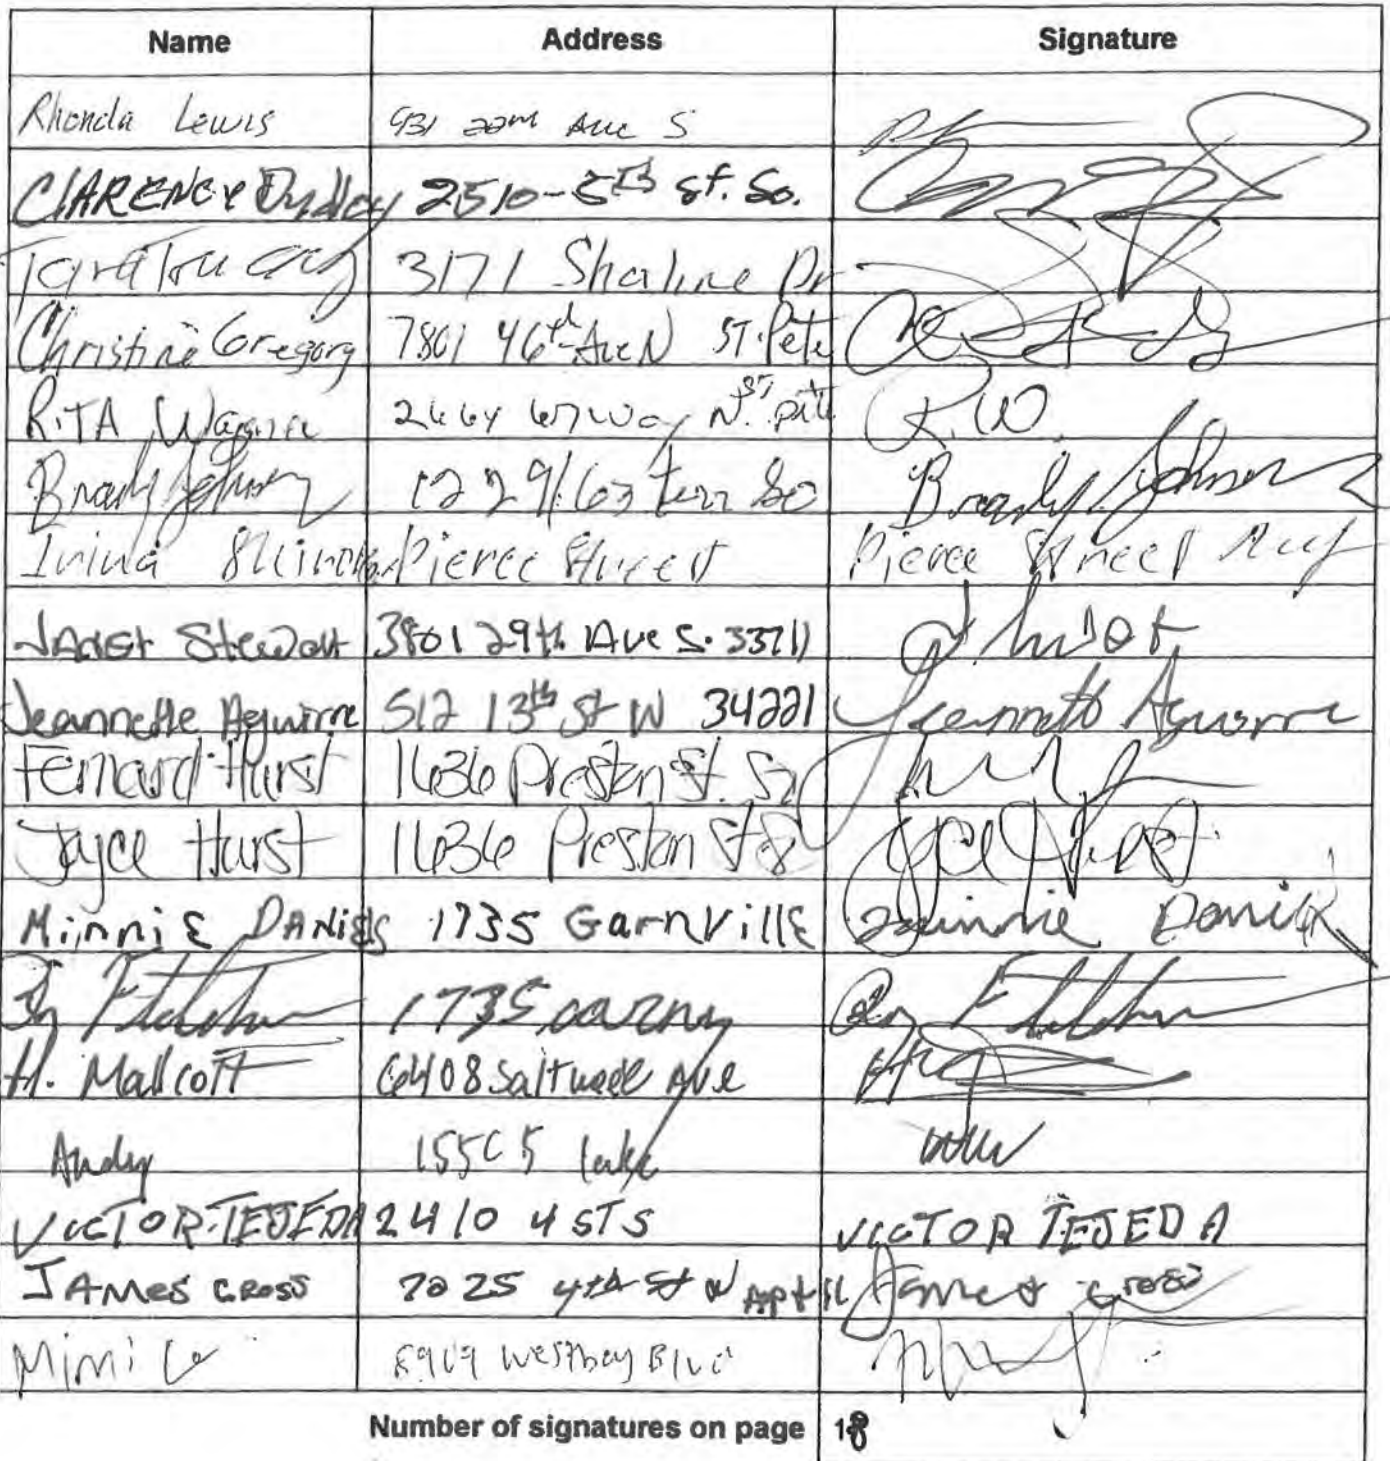 Name Address Signature
Rhonda Lewis 931 22nd Ave S
CLARENCE Dudley 2510-5th St. So.
Tara 3171 Shaline Dr
Christine Gregory 7801 46th Ave N ST. Pete
RITA Wagner 67 Way N. ST Pete R.W.
Brady Johnson 63 terr So Brady Johnson
Pierce Street Pierce Street
Janet Stewart 3801 29th Ave S. 33711
Jeannette Aguirre 512 13th St W 34221 Jeannette Aguirre
Fernard Hurst 1636 Preston St. S
Joyce Hurst 1636 Preston St S Joyce Hurst
MinniE DANiels 1735 GarnVillE Minnie Daniels
Fletcher 1735 Fletcher
H. Mallcott 6408 Ave
Andy 155C5 lake
VICTOR TEJEDA 2410 4 ST S VICTOR TEJEDA
JAMES CROSS 7025 4th St N Apt 11 James Cross
Mimi Le 8909 Westbay Blvd
Number of signatures on page 18